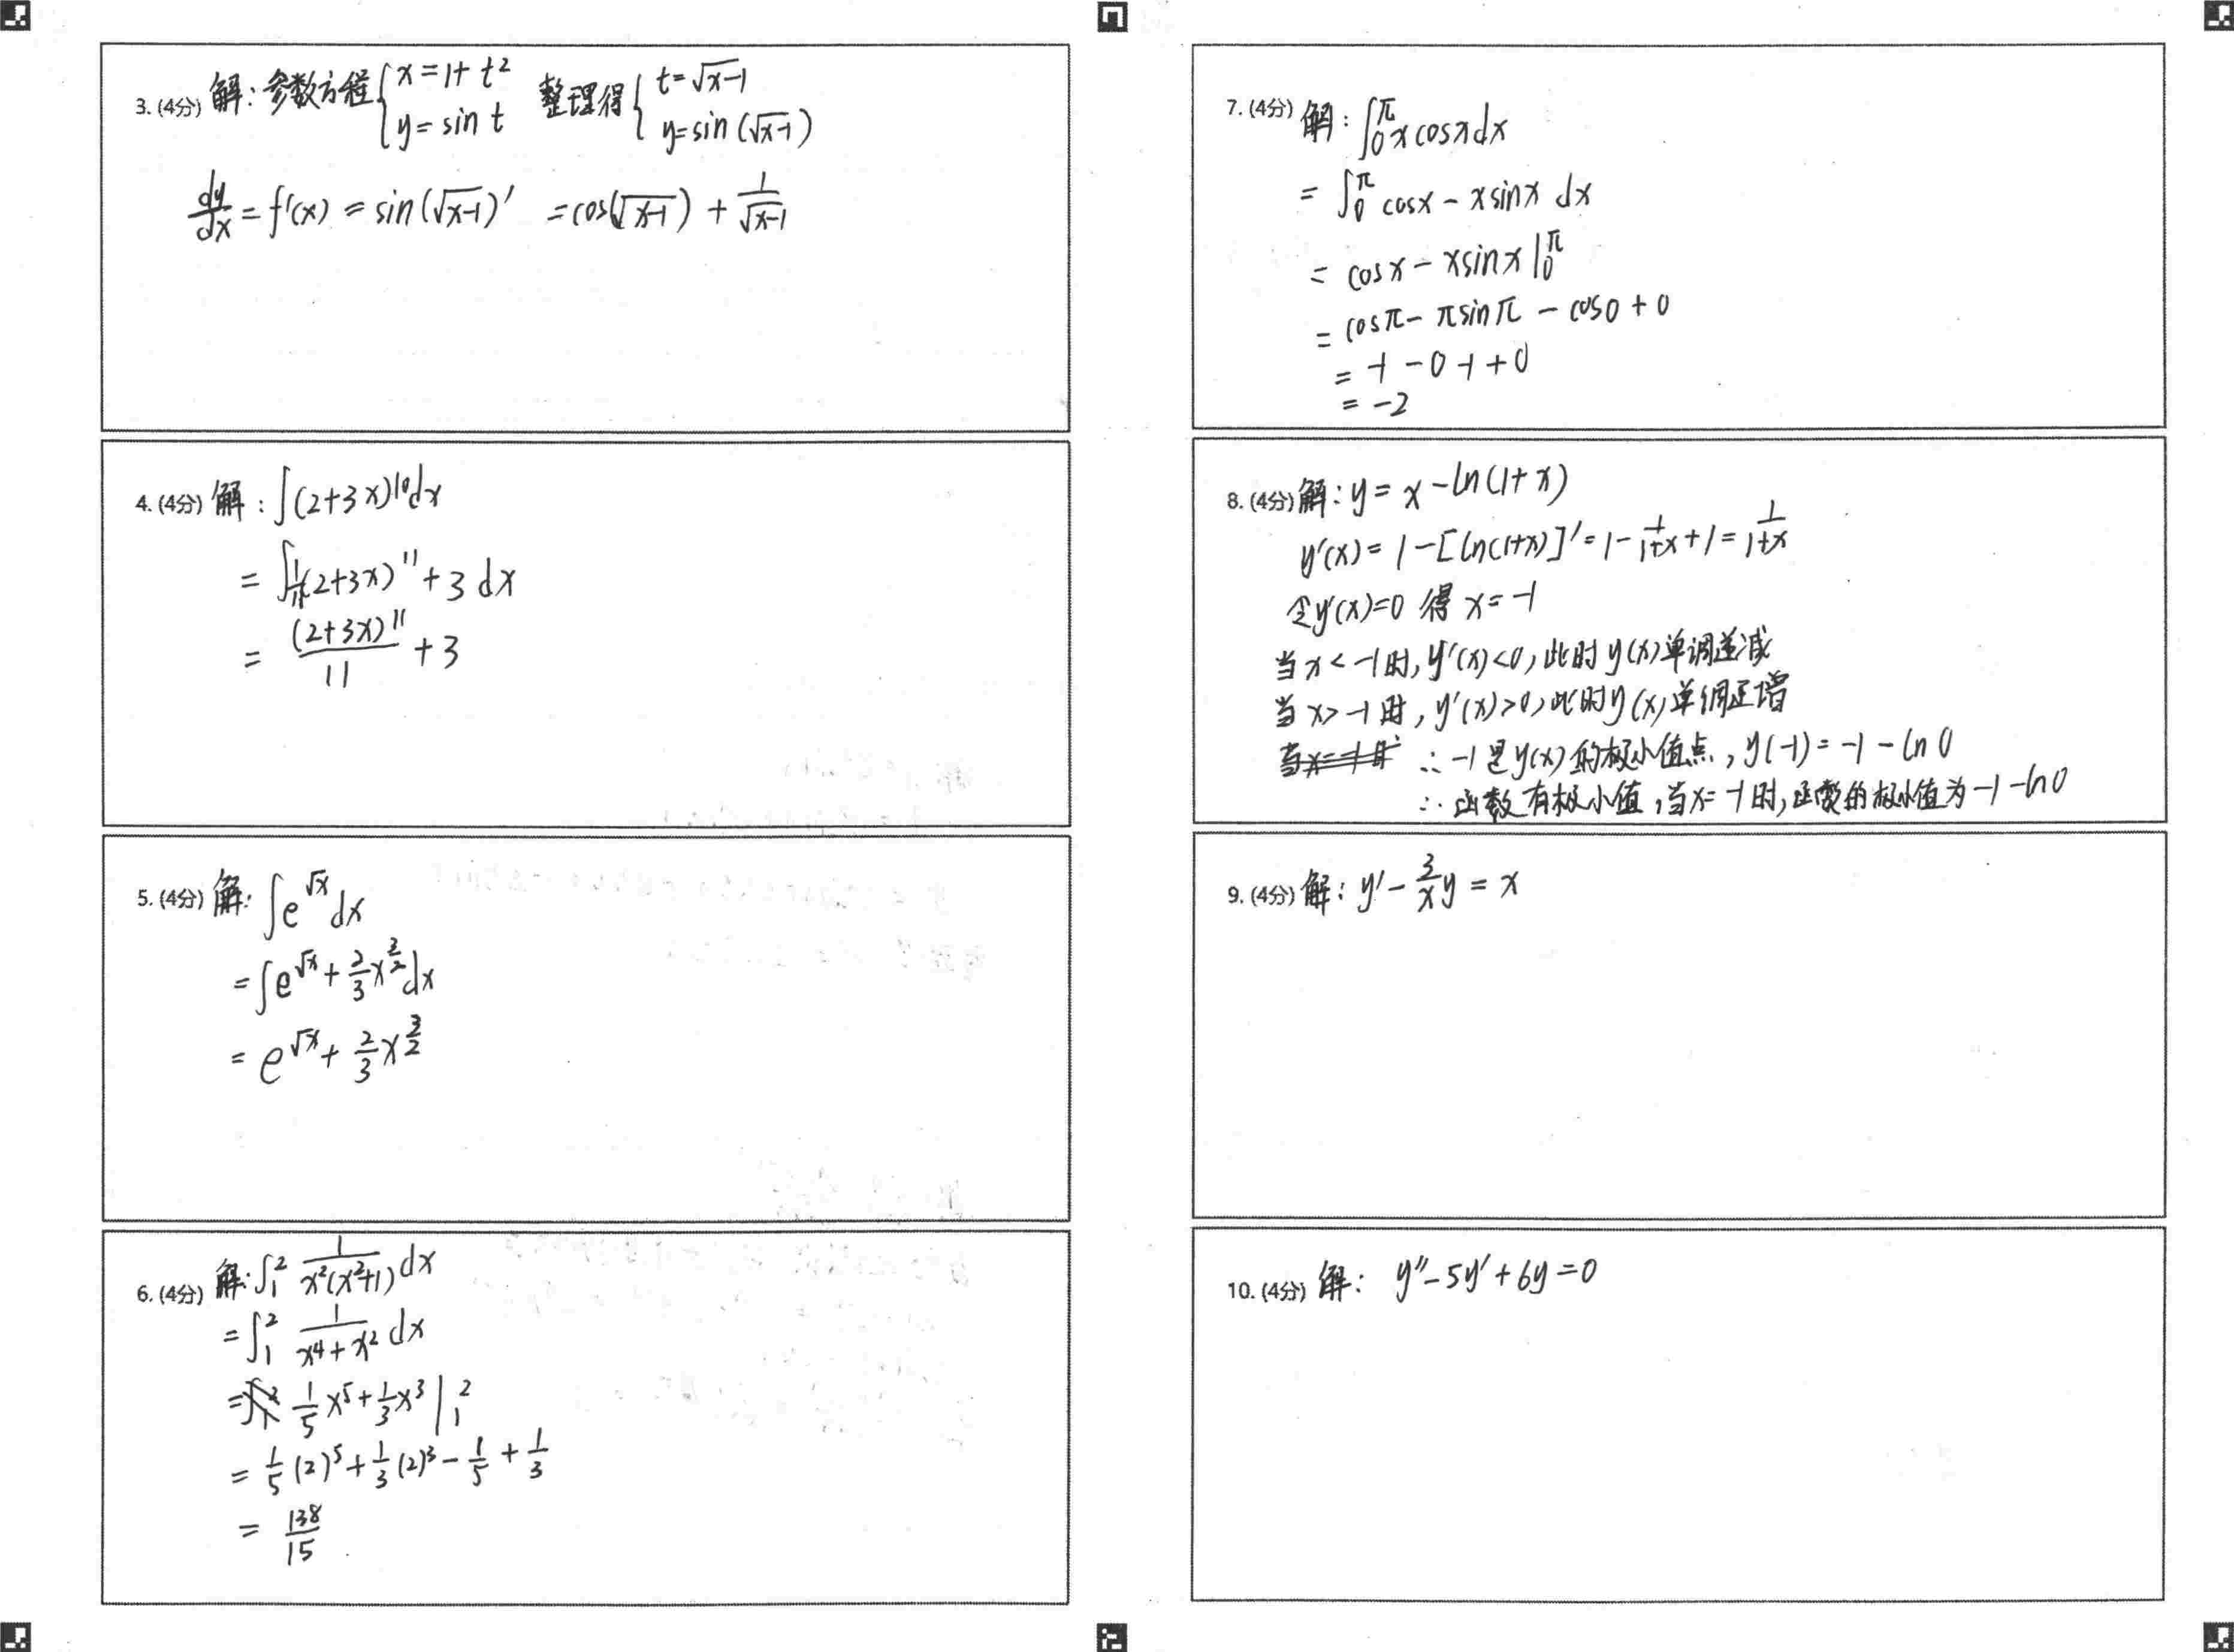 3. (4分) 解: 参数方程 { x = 1 + t² 整理得 { t = √(x-1)
y = sin t y = sin(√(x-1))
dy/dx = f'(x) = sin(√(x-1))' = cos(√(x-1)) + 1/√(x-1)
4. (4分) 解: ∫(2+3x)¹⁰dx
= ∫ 1/11 (2+3x)¹¹ + 3 dx
= (2+3x)¹¹/11 + 3
5. (4分) 解: ∫e^√x dx
= ∫e^√x + 2/3 x^(3/2) dx
= e^√x + 2/3 x^(3/2)
6. (4分) 解: ∫₁² 1/(x²(x²+1)) dx
= ∫₁² 1/(x⁴+x²) dx
= 1/5 x⁵ + 1/3 x³ |₁²
= 1/5 (2)⁵ + 1/3 (2)³ - 1/5 + 1/3
= 138/15
7. (4分) 解: ∫₀^π x cosx dx
= ∫₀^π cosx - x sinx dx
= cosx - x sinx |₀^π
= cosπ - π sinπ - cos0 + 0
= -1 - 0 - 1 + 0
= -2
8. (4分) 解: y = x - ln(1+x)
y'(x) = 1 - [ln(1+x)]' = 1 - 1/(1+x) + 1 = 1/(1+x)
令y'(x)=0 得 x = -1
当 x < -1 时, y'(x)<0, 此时 y(x) 单调递减
当 x > -1 时, y'(x)>0, 此时 y(x) 单调递增
当x=-1时 ∴ -1 是 y(x) 的极小值点, y(-1) = -1 - ln 0
∴ 函数有极小值, 当x = -1 时, 函数的极小值为 -1 - ln0
9. (4分) 解: y' - 3/x y = x
10. (4分) 解: y'' - 5y' + 6y = 0